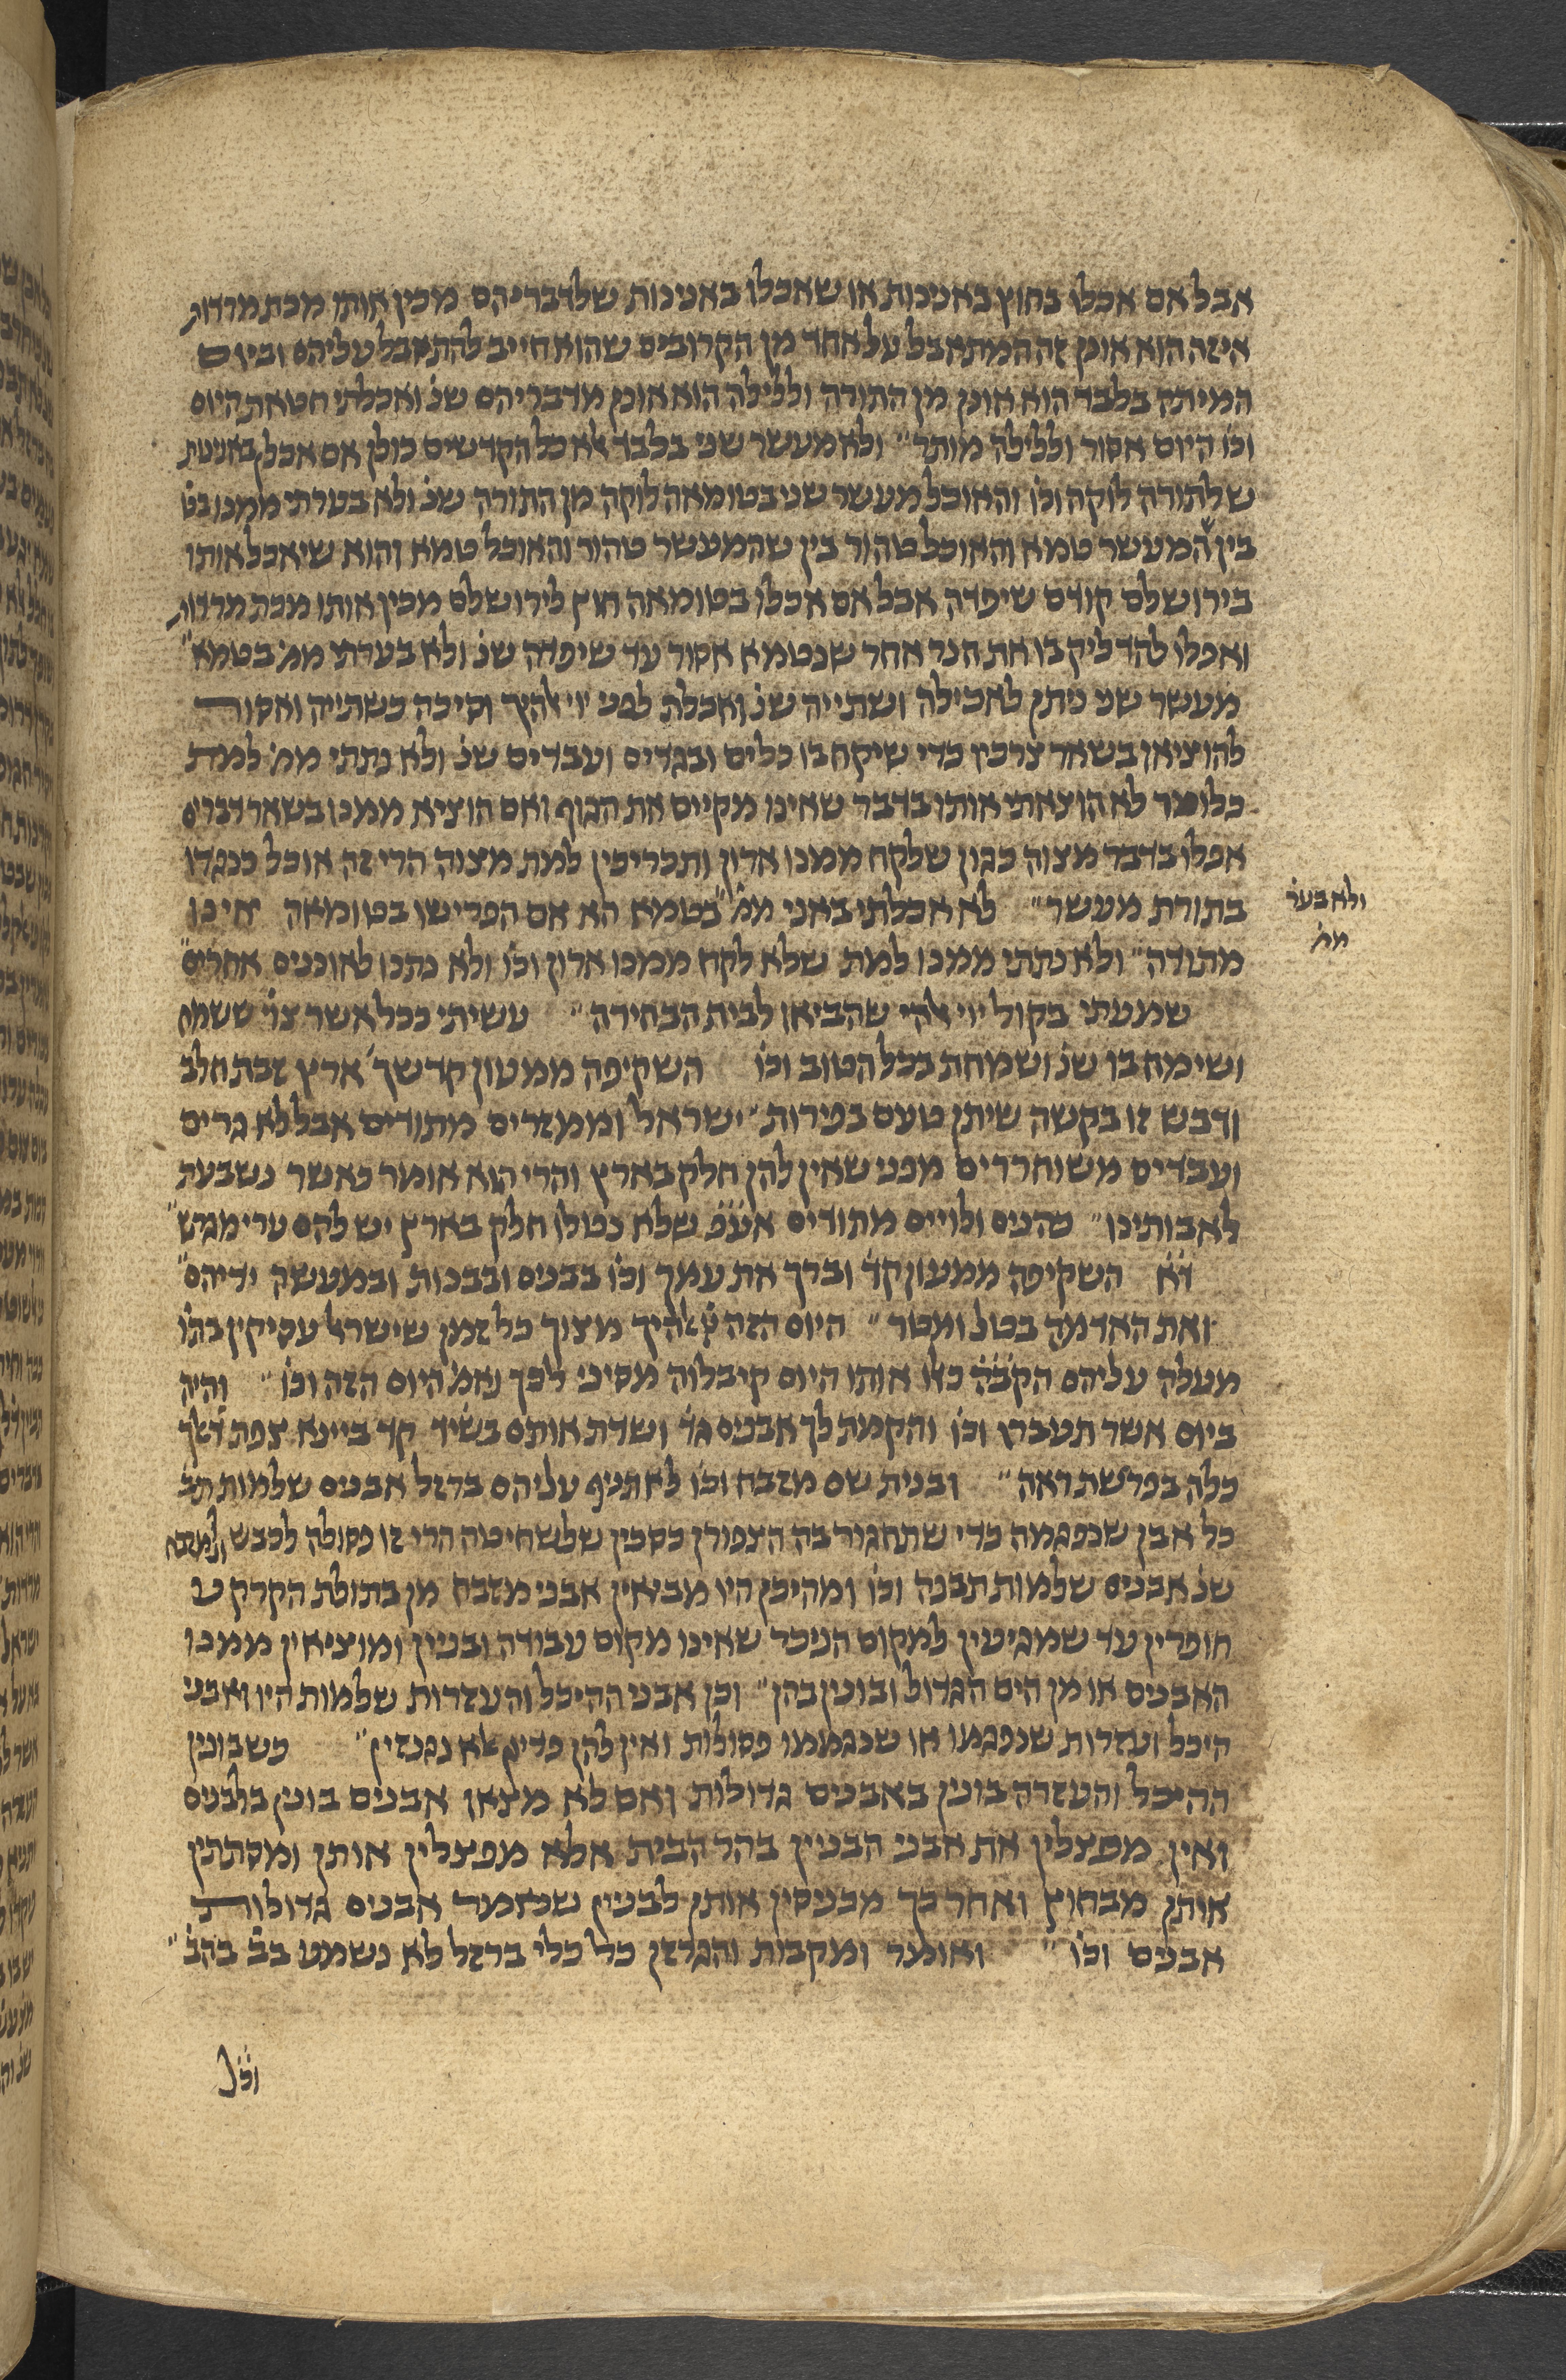 אבל אם אכלו בחוץ באנינות או שאכלו באנינות שלדבריהם מכין אותו מכת מרדות
איזה הוא אונן זה המתאבל על אחד מן הקרובים שהוא חייב להתאבל עליהם וביום
המיתה בלבד הוא אונן מן התורה ולילה הוא אונן מדבריהם שנ ואכלתי חטאת היום
וכו היום אסור ולילה מותר״ ולא מעשר שני בלבד אלא כל הקדשים כולן אם אכלן באנינות
שלתורה לוקה וכו והאוכל מעשר שני בטומאה לוקה מן התורה שנ ולא בערתי ממנו בט
בין המעשר טמא והאוכל טהור בין שהמעשר טהור והאוכל טמא והוא שיאכל אותו
בירושלם קודם שיפדה אבל אם אכלו בטומאה חוץ לירושלם מכין אותו מכת מרדות
ואפלו להדליק בו את הנר אחר שנטמא אסור עד שיפדה שנ ולא בערתי ממ׳ בטמא״
מעשר שני ניתן לאכילה ושתייה שנ ואכלת לפני ייי אלהיך וסיכה כשתייה ואסור
להוציאן בשאר צרכין כדי שיקח בו כלים ובגדים ועבדים שנ ולא נתתי ממ׳ למת
כלומר לא הוצאתי אותו בדבר שאינו מקיים את הגוף ואם הוציא ממנו בשאר דברים
אפלו בדבר מצוה כגון שלקח ממנו ארון ותכריכין למת מצוה הרי זה אוכל כנגדו
בתורת מעשר״ לא אכלתי באני ממ׳ בטמא הא אם הפרישו בטומאה אינו
ולא בער
ממ׳
מתודה״ ולא נתתי ממנו למת שלא לקח ממנו ארון וכו ולא נתנו לאוננים אחרים״
שמעתי בקול ייי אלהי שהביאן לבית הבחירה״ עשיתי ככל אשר צו׳ ששמח
ושימח בו שנ ושמחת בכל הטוב וכו השקיפה ממעון קדשך׳ ארץ זבת חלב
ודבש זו בקשה שיתן טעם בפירות״ ישראל וממזרים מתודים אבל לא גרים
ועבדים משוחררים מפני שאין להן חלק בארץ והרי הוא אומר כאשר נשבעת
לאבותינו״ כהנים ולויים מתודים אע״פ שלא נטלו חלק בארץ יש להם ערי מגרש״
ד״א השקיפה ממעון קד׳ וברך את עמך וכו בבנים ובבנות ובמעשה ידיהם״
ואת האדמה בטל ומטר״ היום הזה ייי אלהיך מצוך כל זמן שישראל עסיקין בהו
מעלה עליהם הקב״ה כאלו אותו היום קיבלוה מסיני לכך נאמ׳ היום הזה וכו״ והיה
ביום אשר תעברו וכו והקמת לך אבנים גד׳ ושדת אותם בשיד
כלה בפרשת ראה״ ובנית שם מזבח וכו לא תניף עליהם ברזל אבנים שלמות תב׳
כל אבן שנפגמה כדי שתחגור בה הצפורן כסכין שלשחיטה הרי זו פסולה לכבש ולמזבח
שנ אבנים שלמות תבנה וכו ומהיכן היו מביאין אבני מזבח מן בתולת הקרקע
חופרין עד שמגיעין למקום הניכר שאינו מקום עבודה ובניין ומוציאין ממנו
האבנים או מן הים הגדול ובונין בהן״ וכן אבני ההיכל והעזרות שלמות היו ואבני
היכל ועזרות שנפגמו או שנגממו פסולות ואין להן פדיון אלא נגנזין״ כשבונין
ההיכל והעזרה בונין באבנים גדולות ואם לא מצאו אבנים בונין בלבנים
ואין מפצלין את אבני הבניין בהר הבית אלא מפצלין אותן ומסתתין
אותן מבחוץ ואחר כך מכניסין אותן לבניין שנאמר אבנים גדולות
אבנים וכו״ ואומר ומקבות והגרזן כל כלי ברזל לא נשמע בב׳ בהב׳״
וכ״ן